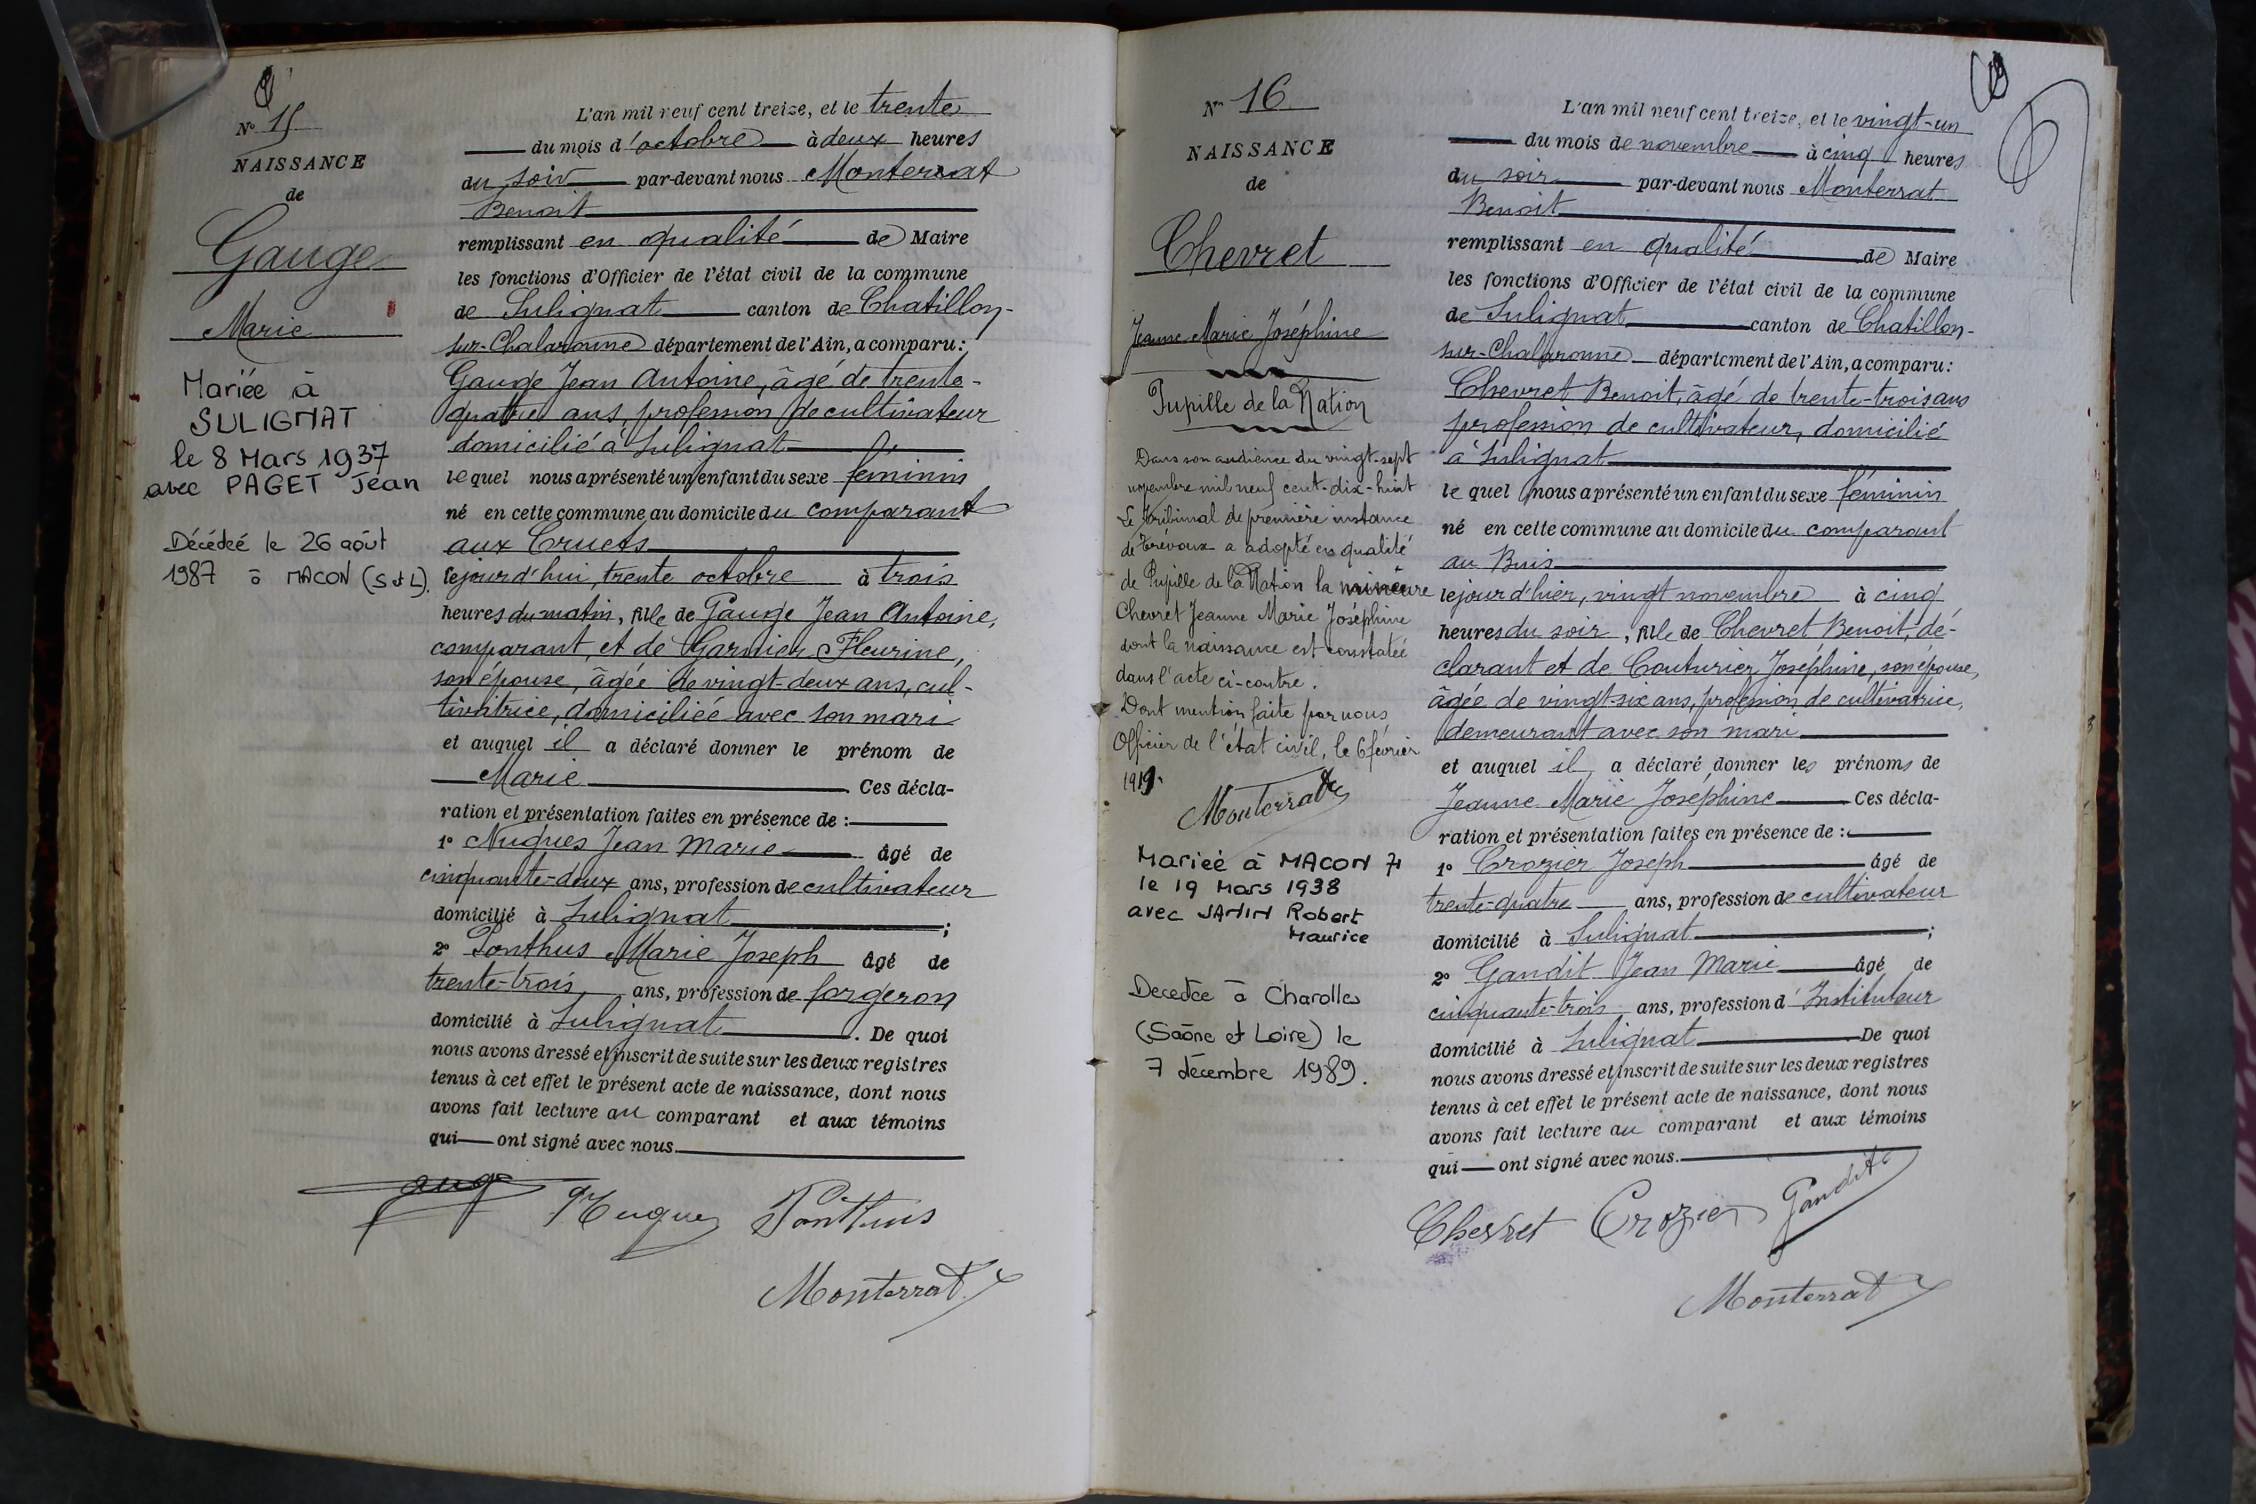 N° 15
NAISSANCE
de
Gauge
Marie
Mariée à
SULIGNAT
le 8 Mars 1937
avec PAGET Jean
Décédée le 26 août
1987 à MACON (S & L).
L'an mil neuf cent treize, et le trente
du mois d'octobre à deux heures
du soir par-devant nous Monterrat
Benoit
remplissant en qualité de Maire
les fonctions d'Officier de l'état civil de la commune
de Sulignat canton de Chatillon-
sur-Chalaronne département de l'Ain, a comparu:
Gauge Jean Antoine, âgé de trente-
quatre ans, profession de cultivateur
domicilié à Sulignat
lequel nous a présenté un enfant du sexe féminin
né en cette commune au domicile du comparant
aux Cruets
lejourd'hui, trente octobre à trois
heures du matin, fille de Gauge Jean Antoine,
comparant, et de Garnier Fleurine,
son épouse, âgée de vingt-deux ans, cul-
tivatrice, domiciliée avec son mari
et auquel il a déclaré donner le prénom de
Marie Ces décla-
ration et présentation faites en présence de :
1° Nugues Jean Marie âgé de
cinquante-deux ans, profession de cultivateur
domicilié à Sulignat ;
2° Ponthus Marie Joseph âgé de
trente-trois ans, profession de forgeron
domicilié à Sulignat. De quoi
nous avons dressé et inscrit de suite sur les deux registres
tenus à cet effet le présent acte de naissance, dont nous
avons fait lecture au comparant et aux témoins
qui ont signé avec nous.
Gauge Nugues Ponthus
Monterrat
N° 16
NAISSANCE
de
Chevret
Jeanne Marie Joséphine
Pupille de la Nation
Dans son audience du vingt-sept
novembre mil neuf cent-dix-huit
Le Tribunal de première instance
de Trévoux a adopté en qualité
de Pupille de la Nation la mineure
Chevret Jeanne Marie Joséphine
dont la naissance est constatée
dans l'acte ci-contre.
Dont mention faite par nous
Officier de l'état civil, le 6 février
1919.
Monterrat
Mariée à MACON 71
le 19 Mars 1938
avec JANIN Robert
Maurice
Decedée à Charolles
(Saône et Loire) le
7 décembre 1989.
L'an mil neuf cent treize, et le vingt-un
du mois de novembre à cinq heures
du soir par-devant nous Monterrat
Benoit
remplissant en qualité de Maire
les fonctions d'Officier de l'état civil de la commune
de Sulignat canton de Chatillon-
sur-Chalaronne département de l'Ain, a comparu:
Chevret Benoit, âgé de trente-trois ans
profession de cultivateur, domicilié
à Sulignat
lequel nous a présenté un enfant du sexe féminin
né en cette commune au domicile du comparant
au Buis
lejourd'hier, vingt novembre à cinq
heures du soir, fille de Chevret Benoit, dé-
clarant et de Couturier Joséphine, son épouse,
âgée de vingt-six ans, profession de cultivatrice,
demeurant avec son mari
et auquel il a déclaré donner les prénoms de
Jeanne Marie Joséphine Ces décla-
ration et présentation faites en présence de :
1° Crozier Joseph âgé de
trente-quatre ans, profession de cultivateur
domicilié à Sulignat ;
2° Gandit Jean Marie âgé de
cinquante-trois ans, profession d'Instituteur
domicilié à Sulignat De quoi
nous avons dressé et inscrit de suite sur les deux registres
tenus à cet effet le présent acte de naissance, dont nous
avons fait lecture au comparant et aux témoins
qui ont signé avec nous.
Chevret Crozier Gandit
Monterrat